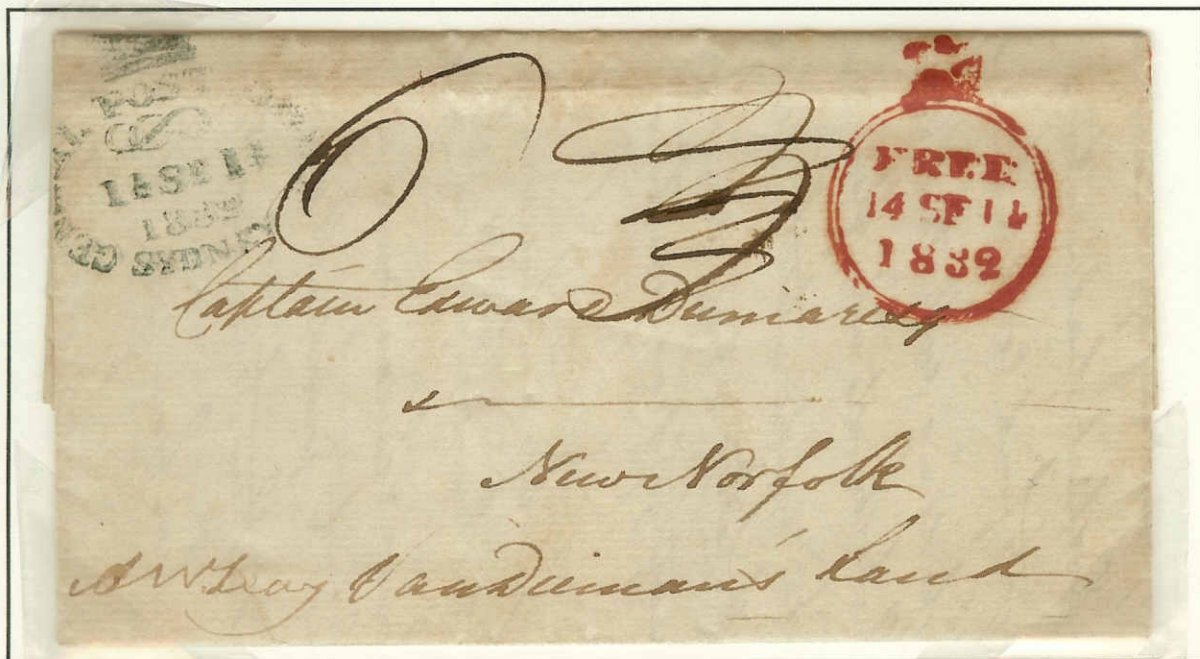 GENERAL POST
14 SE 14
1832
FREE
14 SE 14
1832
Captain Edward Dumaresq
New Norfolk
Van Dieman's Land